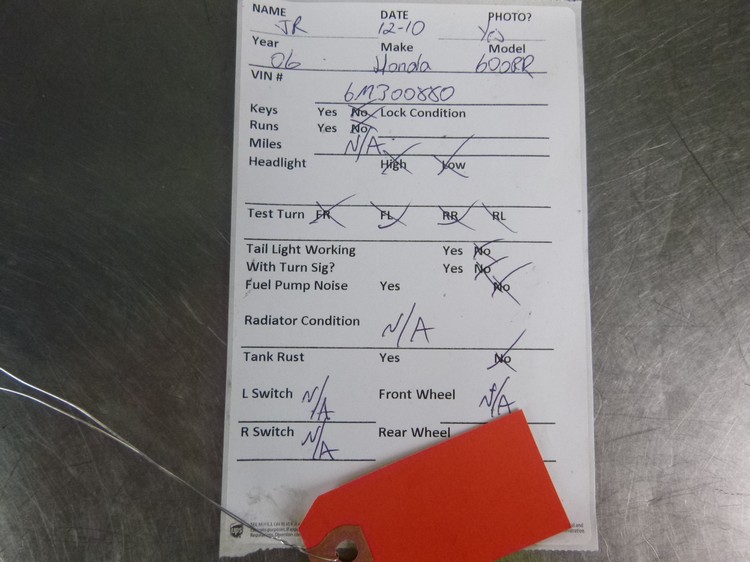 NAME DATE PHOTO?
JR 12-10 Yes
Year Make Model
06 Honda 600RR
VIN # 6M300880
Keys Yes No Lock Condition
Runs Yes No
Miles N/A
Headlight High Low
Test Turn FR FL RR RL
Tail Light Working Yes No
With Turn Sig? Yes No
Fuel Pump Noise Yes No
Radiator Condition N/A
Tank Rust Yes No
L Switch N/A Front Wheel N/A
R Switch N/A Rear Wheel